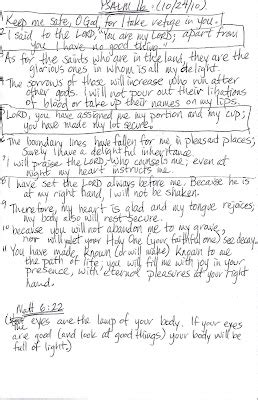 PSALM 16 (10/24/10)
1 Keep me safe, O God, for I take refuge in you.
2 I said to the LORD, "You are my LORD; apart from
you I have no good thing."
3 As for the saints who are in the land, they are the
glorious ones in whom is all my delight.
4 The sorrows of those will increase who run after
other gods. I will not pour out their libations
of blood or take up their names on my lips.
5 LORD, you have assigned me my portion and my cup;
you have made my lot secure.
6 The boundary lines have fallen for me in pleasant places;
surely I have a delightful inheritance.
7 I will praise the LORD, who counsels me; even at
night my heart instructs me.
8 I have set the LORD always before me. Because he is
at my right hand, I will not be shaken.
9 Therefore, my heart is glad and my tongue rejoices;
my body also will rest secure.
10 because you will not abandon me to my grave,
nor will you let your Holy One (your faithful one) see decay.
11 You have made, known (or will make) known to me
the path of life; you will fill me with joy in your
presence, with eternal pleasures at your right
hand.
Matt 6:22
eyes are the lamp of your body. If your eyes
are good (and look at good things) your body will be
full of light)